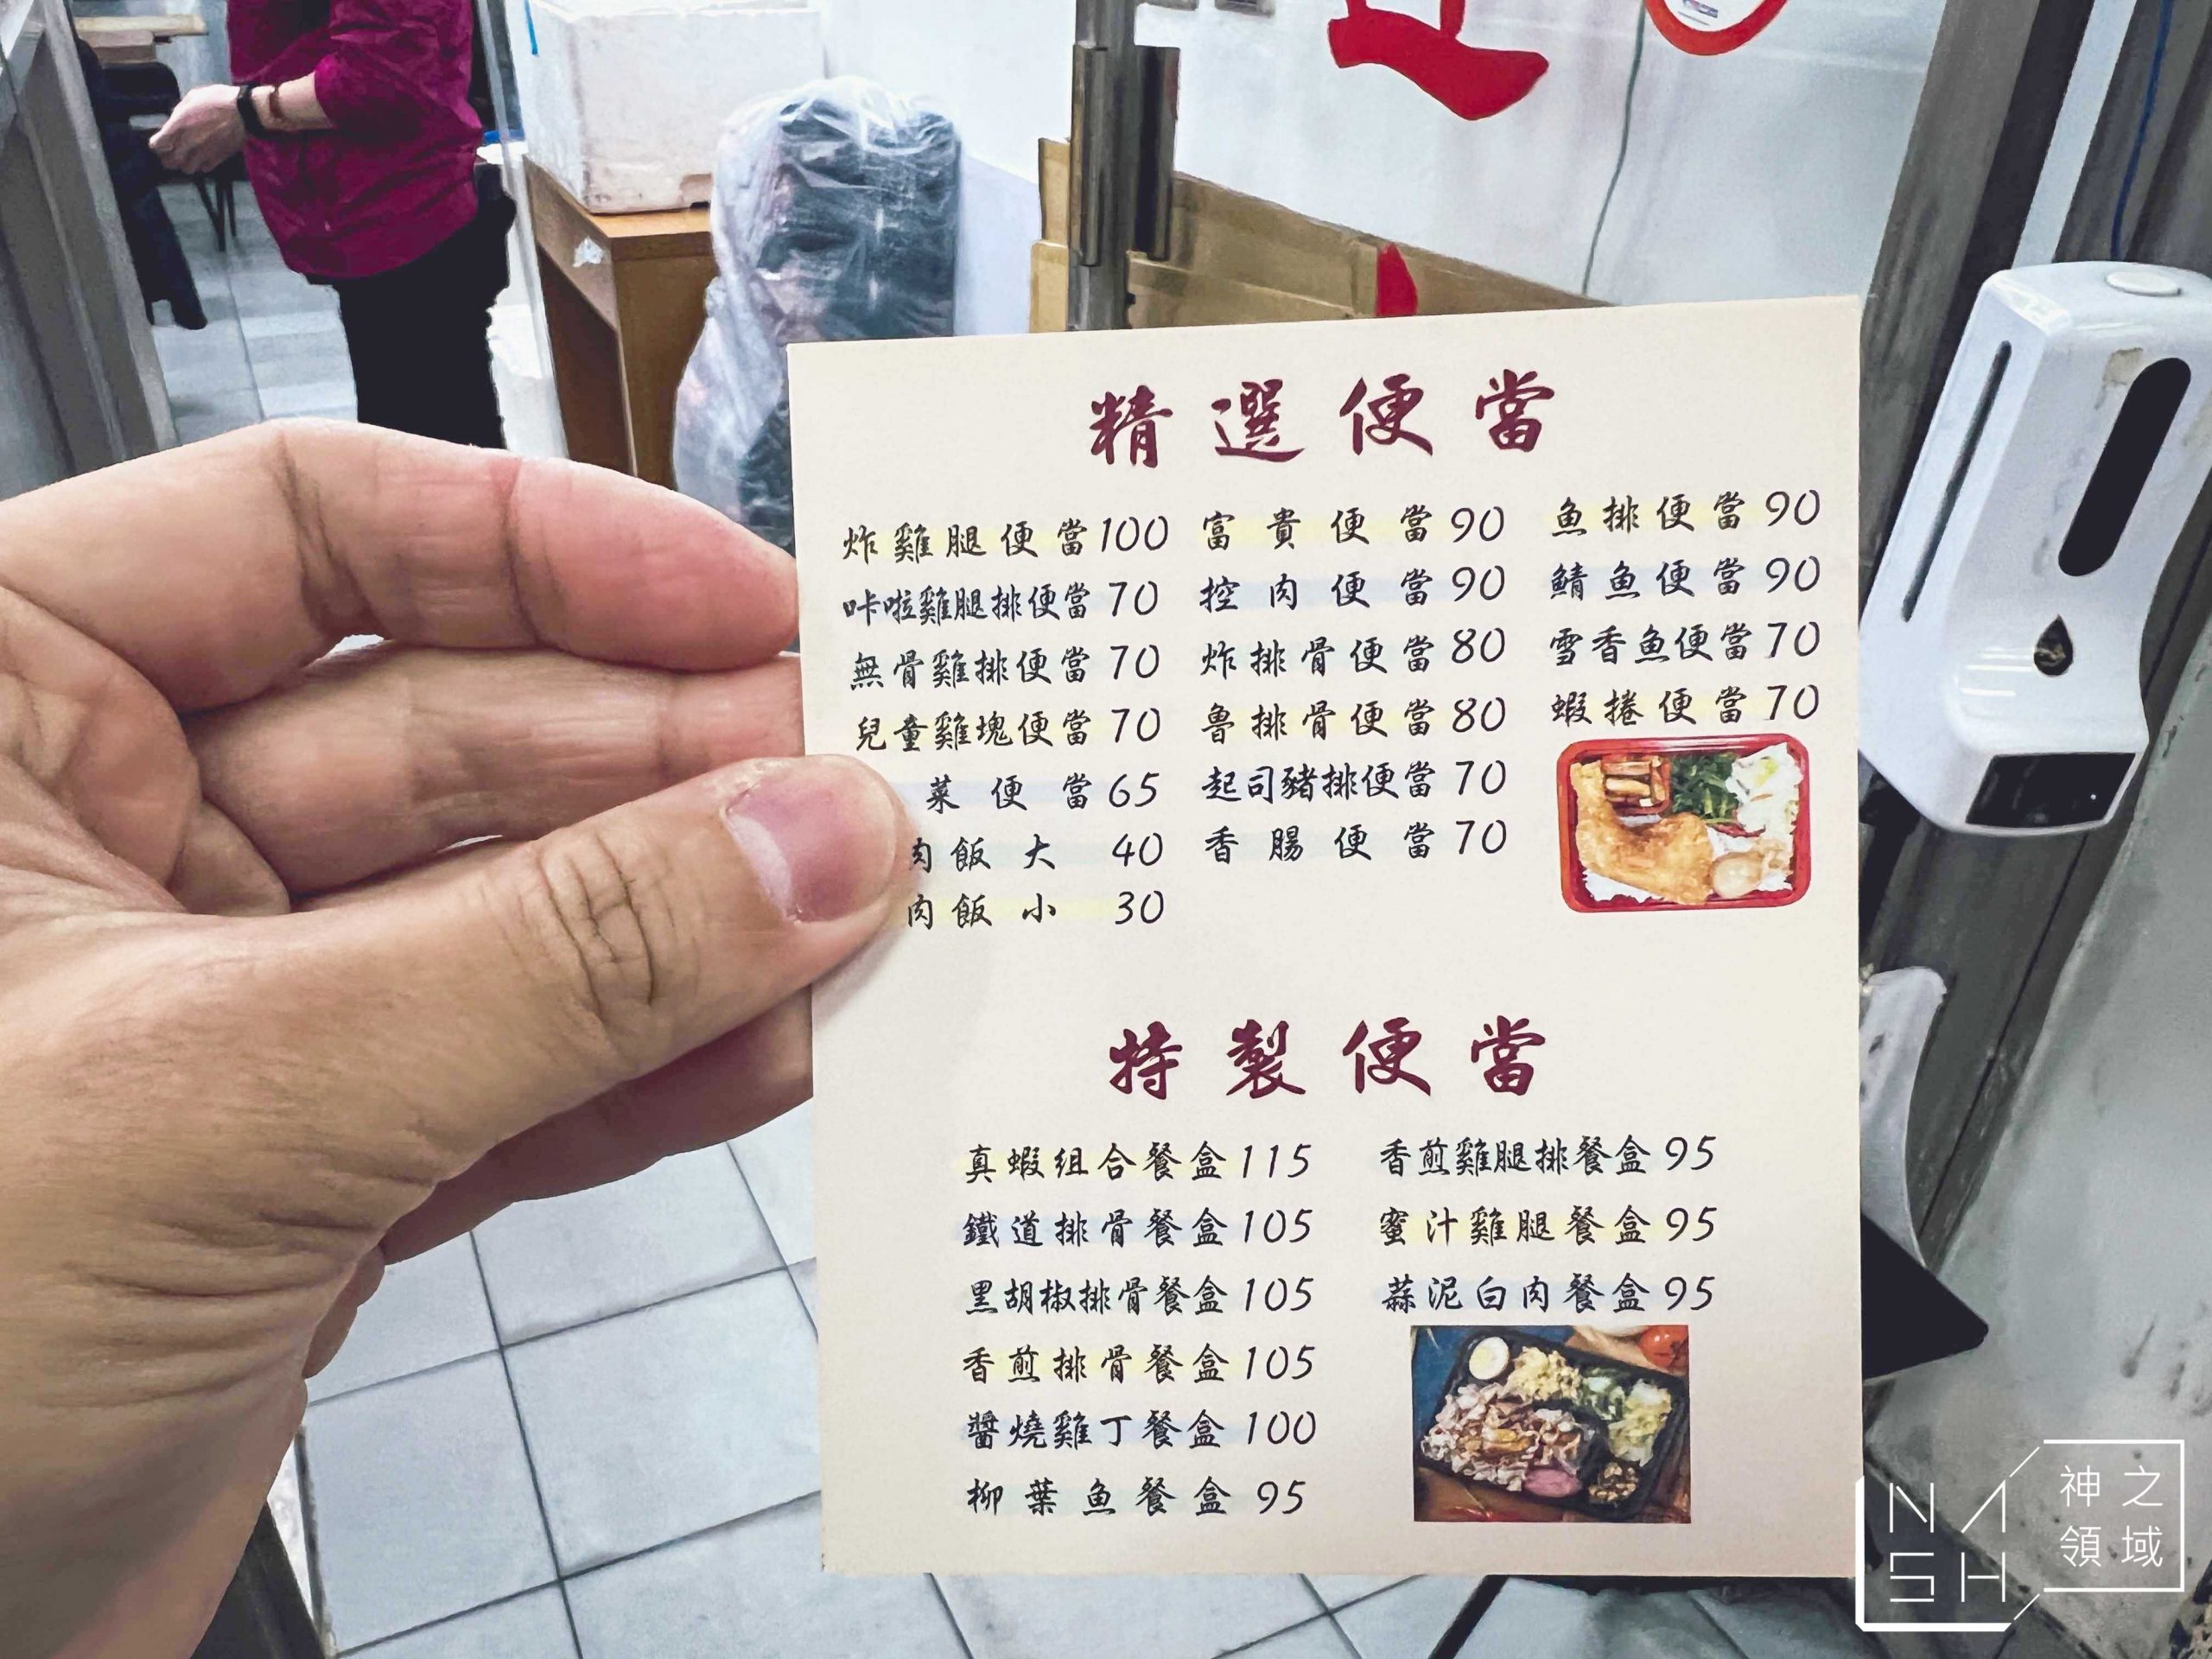 精選便當
炸雞腿便當 100
咔啦雞腿排便當 70
無骨雞排便當 70
兒童雞塊便當 70
菜便當 65
肉飯大 40
肉飯小 30
富貴便當 90
控肉便當 90
炸排骨便當 80
魯排骨便當 80
起司豬排便當 70
香腸便當 70
魚排便當 90
鯖魚便當 90
雪香魚便當 70
蝦捲便當 70
特製便當
真蝦組合餐盒 115
鐵道排骨餐盒 105
黑胡椒排骨餐盒 105
香煎排骨餐盒 105
醬燒雞丁餐盒 100
柳葉魚餐盒 95
香煎雞腿排餐盒 95
蜜汁雞腿餐盒 95
蒜泥白肉餐盒 95
NASH
神之
領域